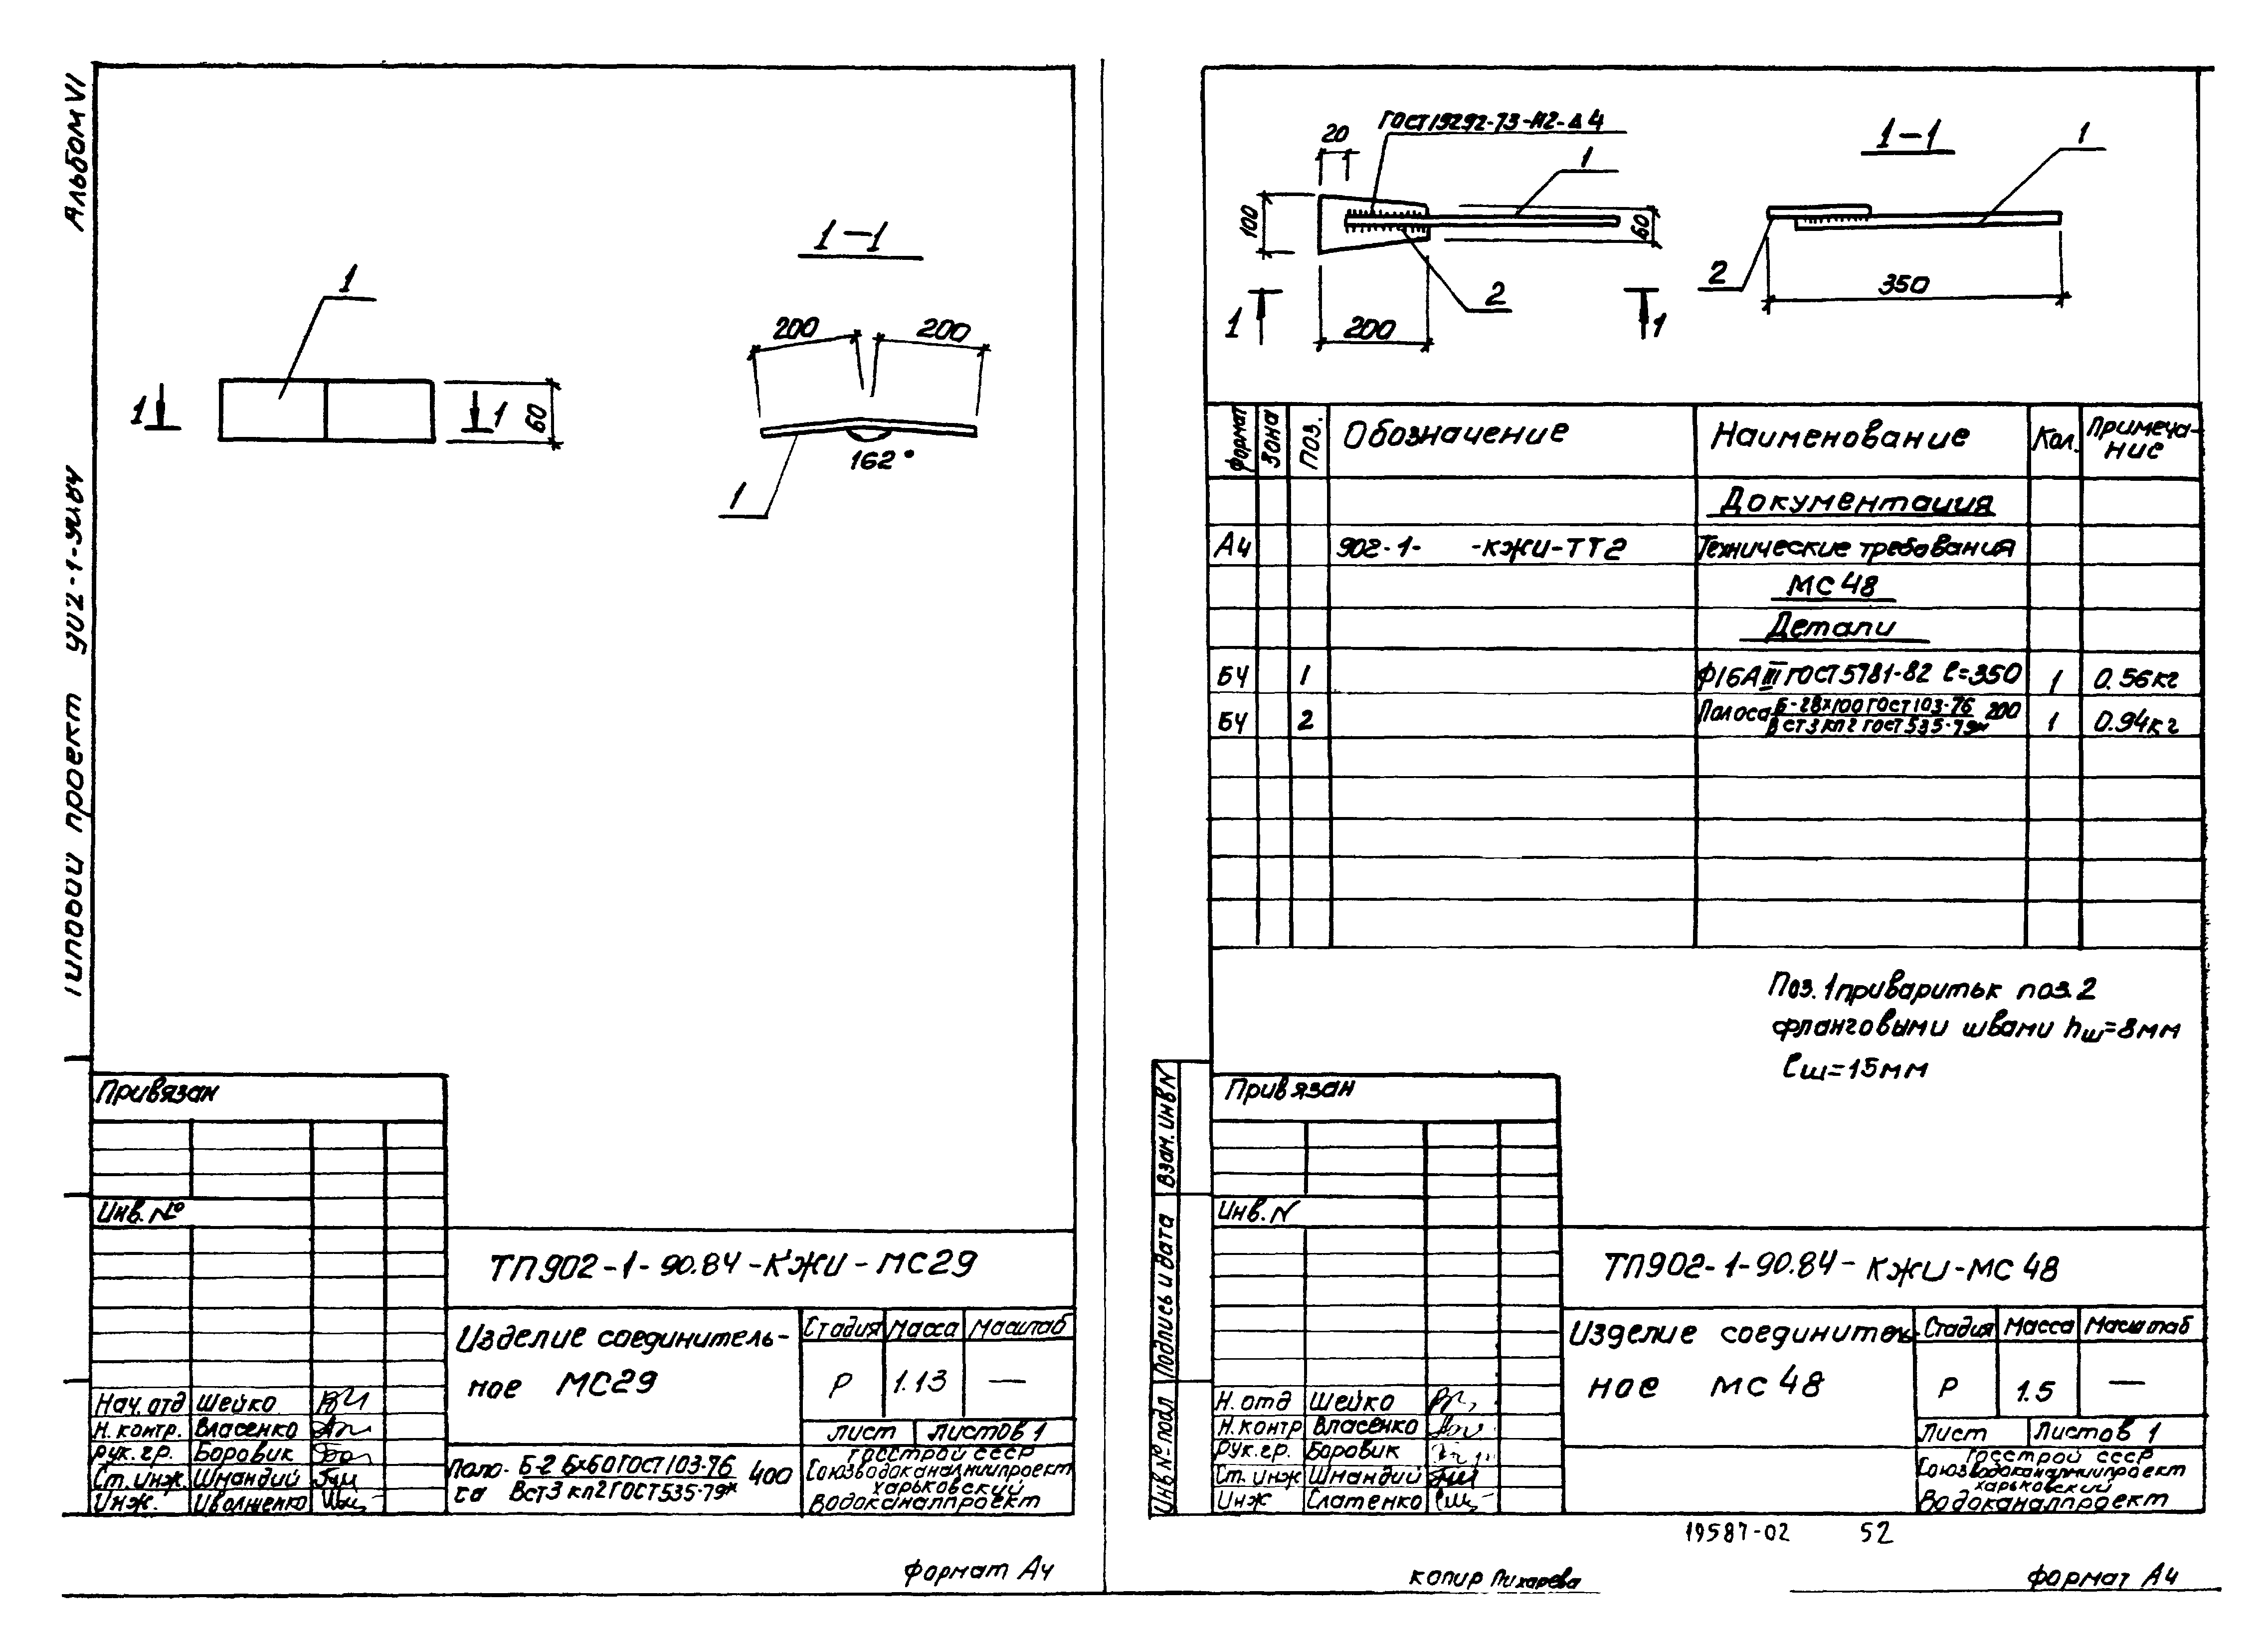 Альбом VI
Типовой проект 902-1-90.84
1
1
1
60
1-1
200
200
162°
1
Привязан
Инв. №
Нач. отд Шейко
Н. контр. Власенко
Рук. гр. Боровик
Ст. инж. Шнандий
Инж.
ТП902-1-90.84-КЖИ-МС29
Изделие соединитель-
ное МС29
Стадия Масса Масштаб
Р 1.13 —
Лист Листов 1
Поло- Б-2 6х60 ГОСТ 103-76 400
са Вст3 кп2 ГОСТ 535-79*
Госстрой СССР
Союзводоканалниипроект
Харьковский
Водоканалпроект
формат А4
ГОСТ 19292-73-Н2-Δ4
20
1
100
60
2
1
1
200
1-1
1
2
350
Формат Зона Поз. Обозначение Наименование Кол. Примеча-
ние
Документация
А4 902-1- -КЖИ-ТТ2 Технические требования
МС 48
Детали
БЧ 1 ф16АIII ГОСТ 5781-82 ℓ=350 1 0.56кг
БЧ 2 Полоса Б-2 8х100 ГОСТ 103-76 200 1 0.94кг
Вст3 кп2 ГОСТ 535-79*
Поз. 1 приварить к поз. 2
фланговыми швами hш=8мм
ℓш=15мм
Взам. инв N
Подпись и дата
Инв № подл
Привязан
Инв. N
Н. отд Шейко
Н. контр Власенко
Рук. гр. Боровик
Ст. инж Шнандий
Инж Слатенко
ТП902-1-90.84-КЖИ-МС 48
Изделие соединитель-
ное МС 48
Стадия Масса Масштаб
Р 1.5 —
Лист Листов 1
Госстрой СССР
Союзводоканалниипроект
Харьковский
Водоканалпроект
19587-02 52
копир Пихарева
формат А4